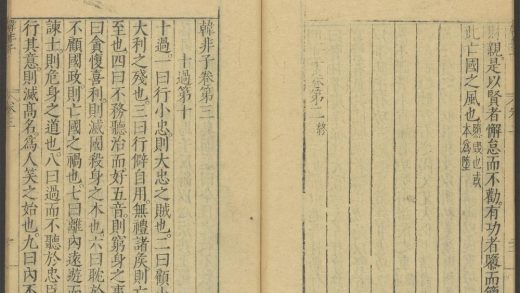 親是以賢者懈怠而不勸有功者隳而簡
此亡國之風也
隳毀也或
本為墮
卷第二 終
韓非子卷第三
十過第十
十過一曰行小忠則大忠之賊也二曰顧小
大利之殘也三曰行僻自用無禮諸矦則亡
至也四曰不務聽治而好五音則窮身之事
曰貪愎喜利則滅國殺身之本也六曰耽於
不顧國政則亡國之禍也七曰離內遠遊而
諫士則危身之道也八曰過而不聽於忠臣
行其意則滅高名為人笑之始也九曰內不